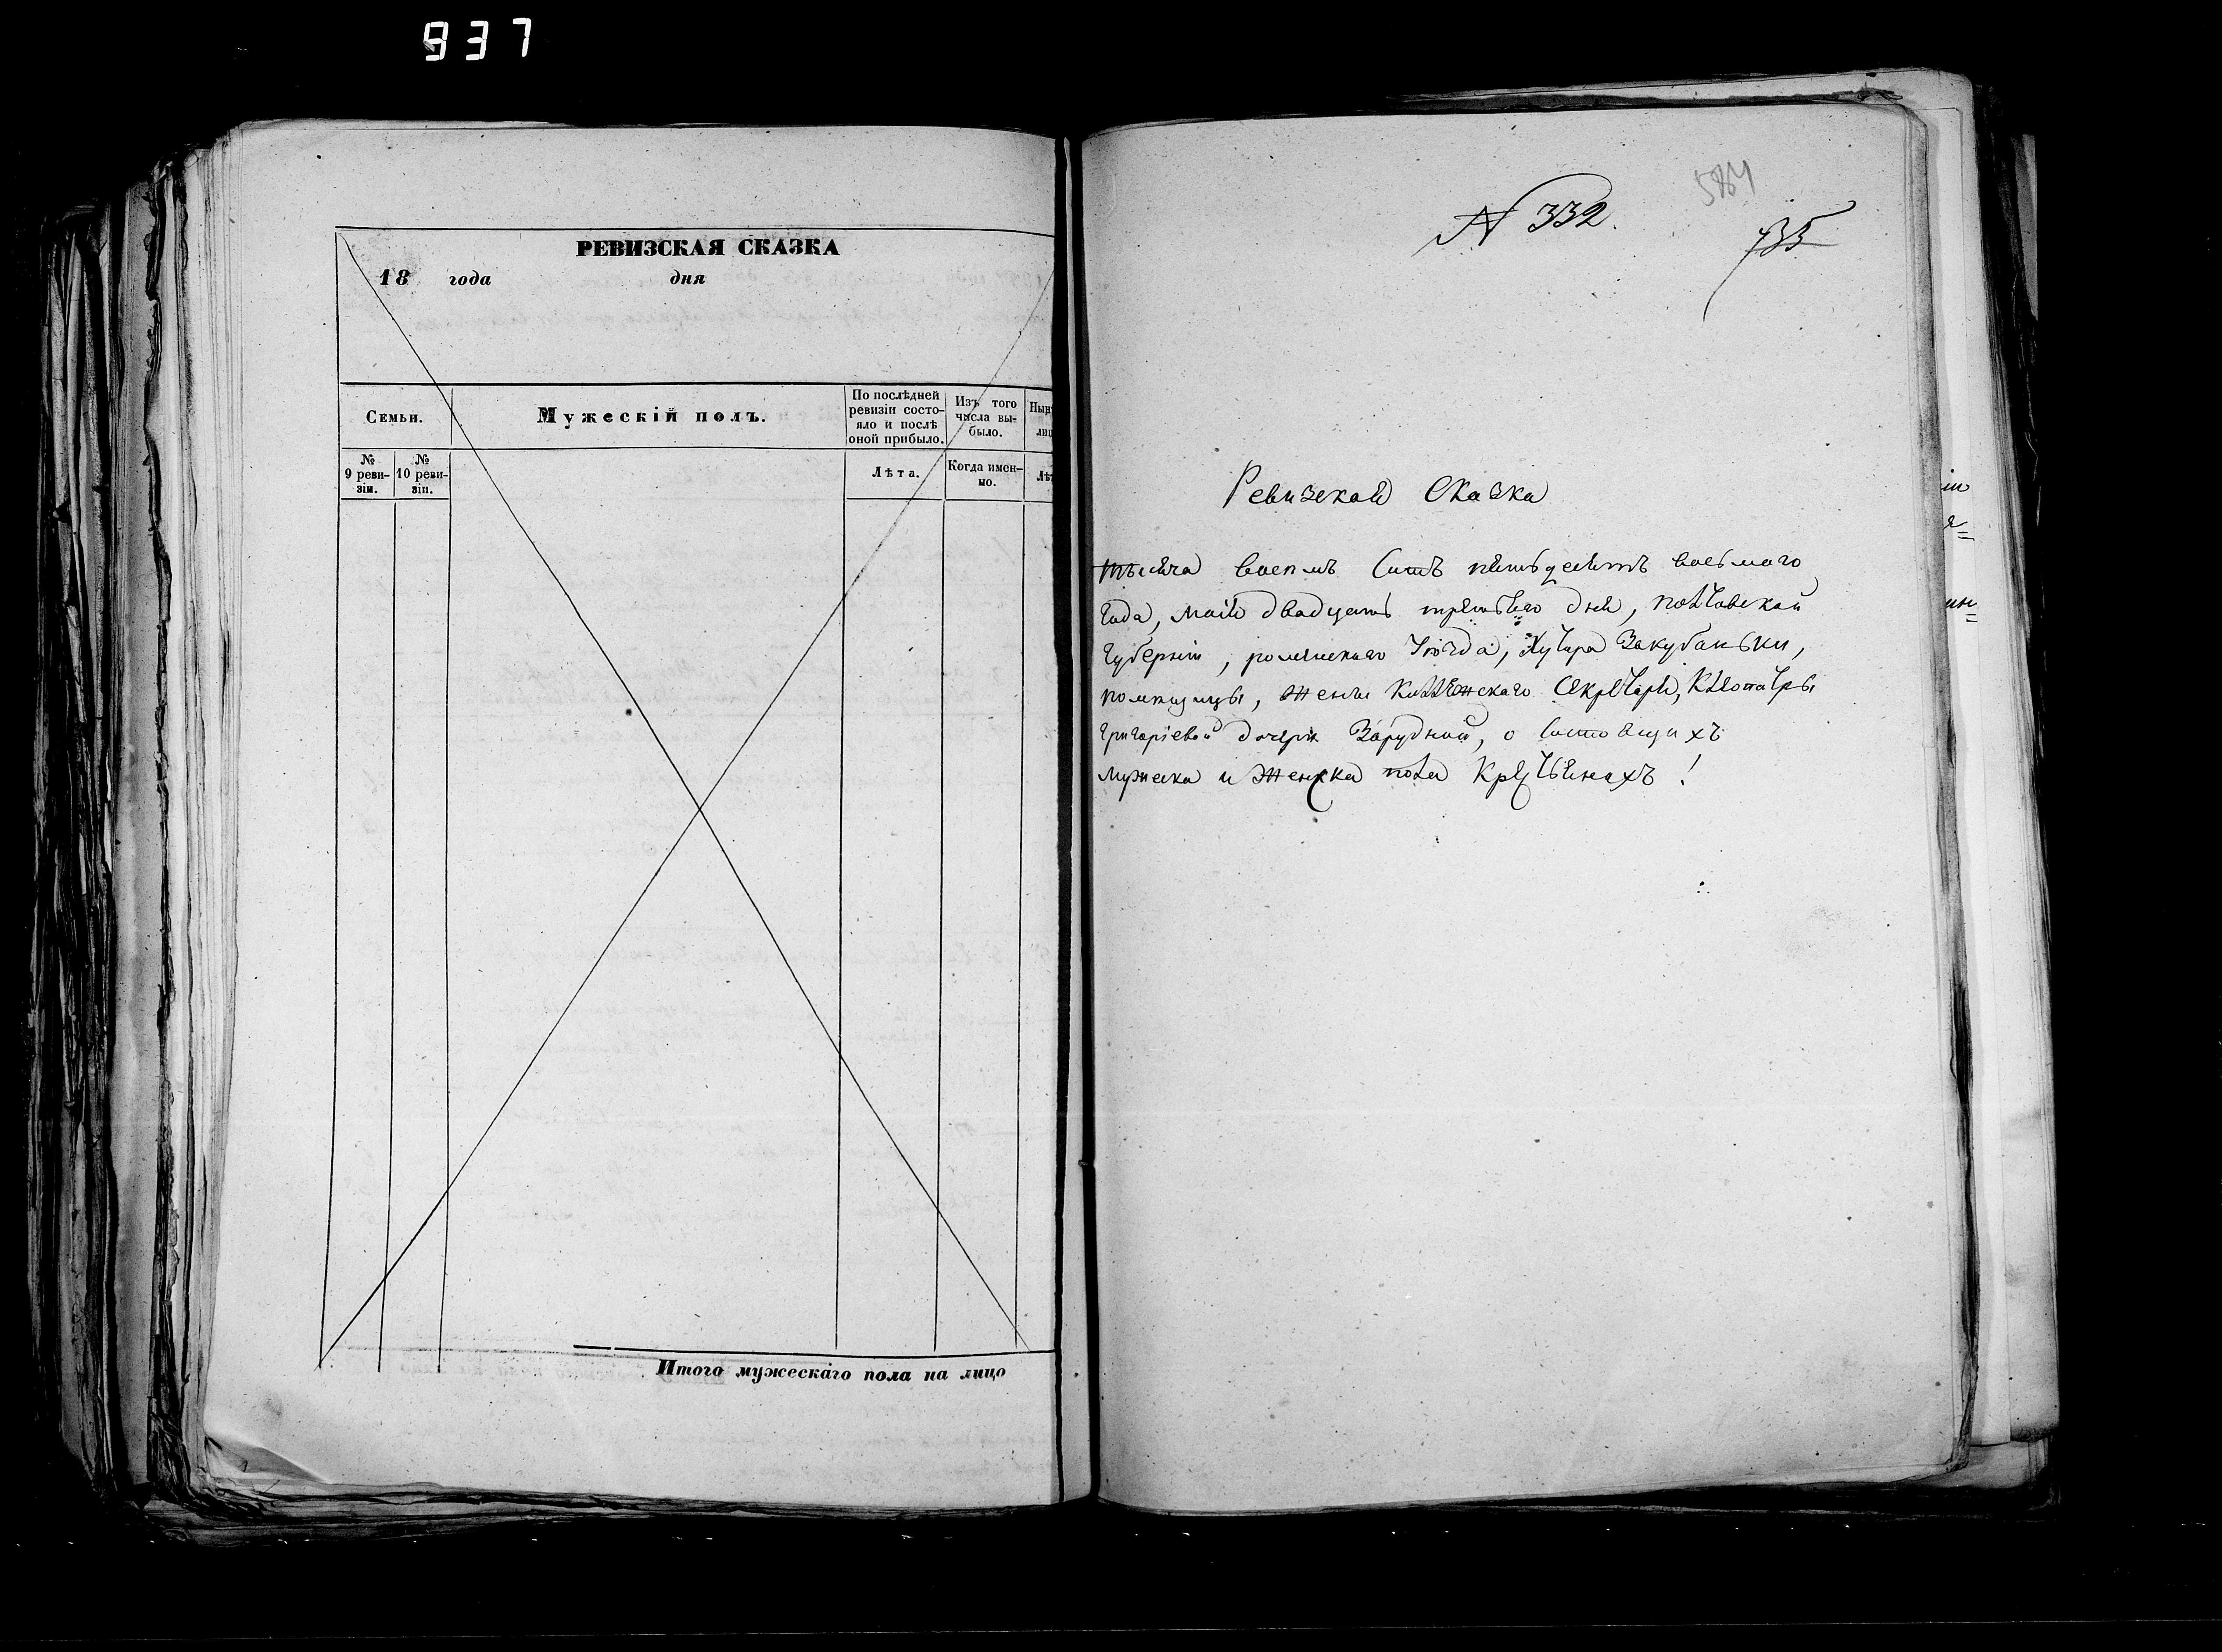 937
РЕВИЗСКАЯ СКАЗКА
18 года дня
Семьи.
Мужескій полъ.
По послѣдней ревизіи состояло и послѣ оной прибыло.
Изъ того числа выбыло.
№ 9 ревизіи.
№ 10 ревизіи.
Лѣта.
Когда именно.
Итого мужескаго пола на лицо
N 332.
584
735
Ревизская Сказка
тысяча восемъ сотъ пятьдесятъ восьмого
года, мая двадцать третьего дня, полтавской
губерніи, роменского уѣзда, Хутора Закубаньки,
помѣщицы, жены Коллежскаго Секретаря, Клеопатры
григоріевой дочери Зарудной, о состоящихъ
мужеска и женска пола Крестьянахъ!